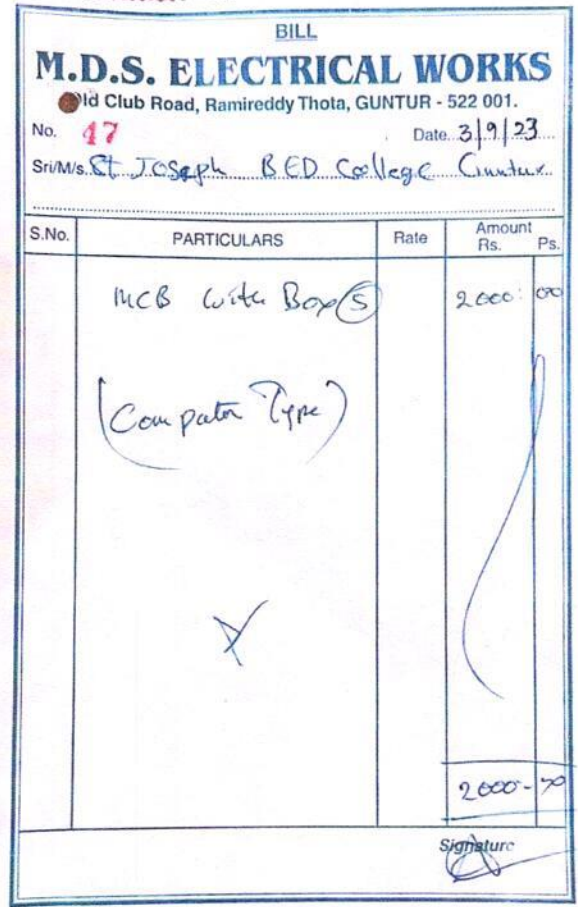 BILL
M.D.S. ELECTRICAL WORKS
Old Club Road, Ramireddy Thota, GUNTUR - 522 001.
No. 47 Date 3/9/23
Sri/M/s. St Joseph BED College Guntur
S.No. PARTICULARS Rate Amount Rs. Ps.
MCB with Box (5) 2000: 00
(Computer Type)
2000-
Signature